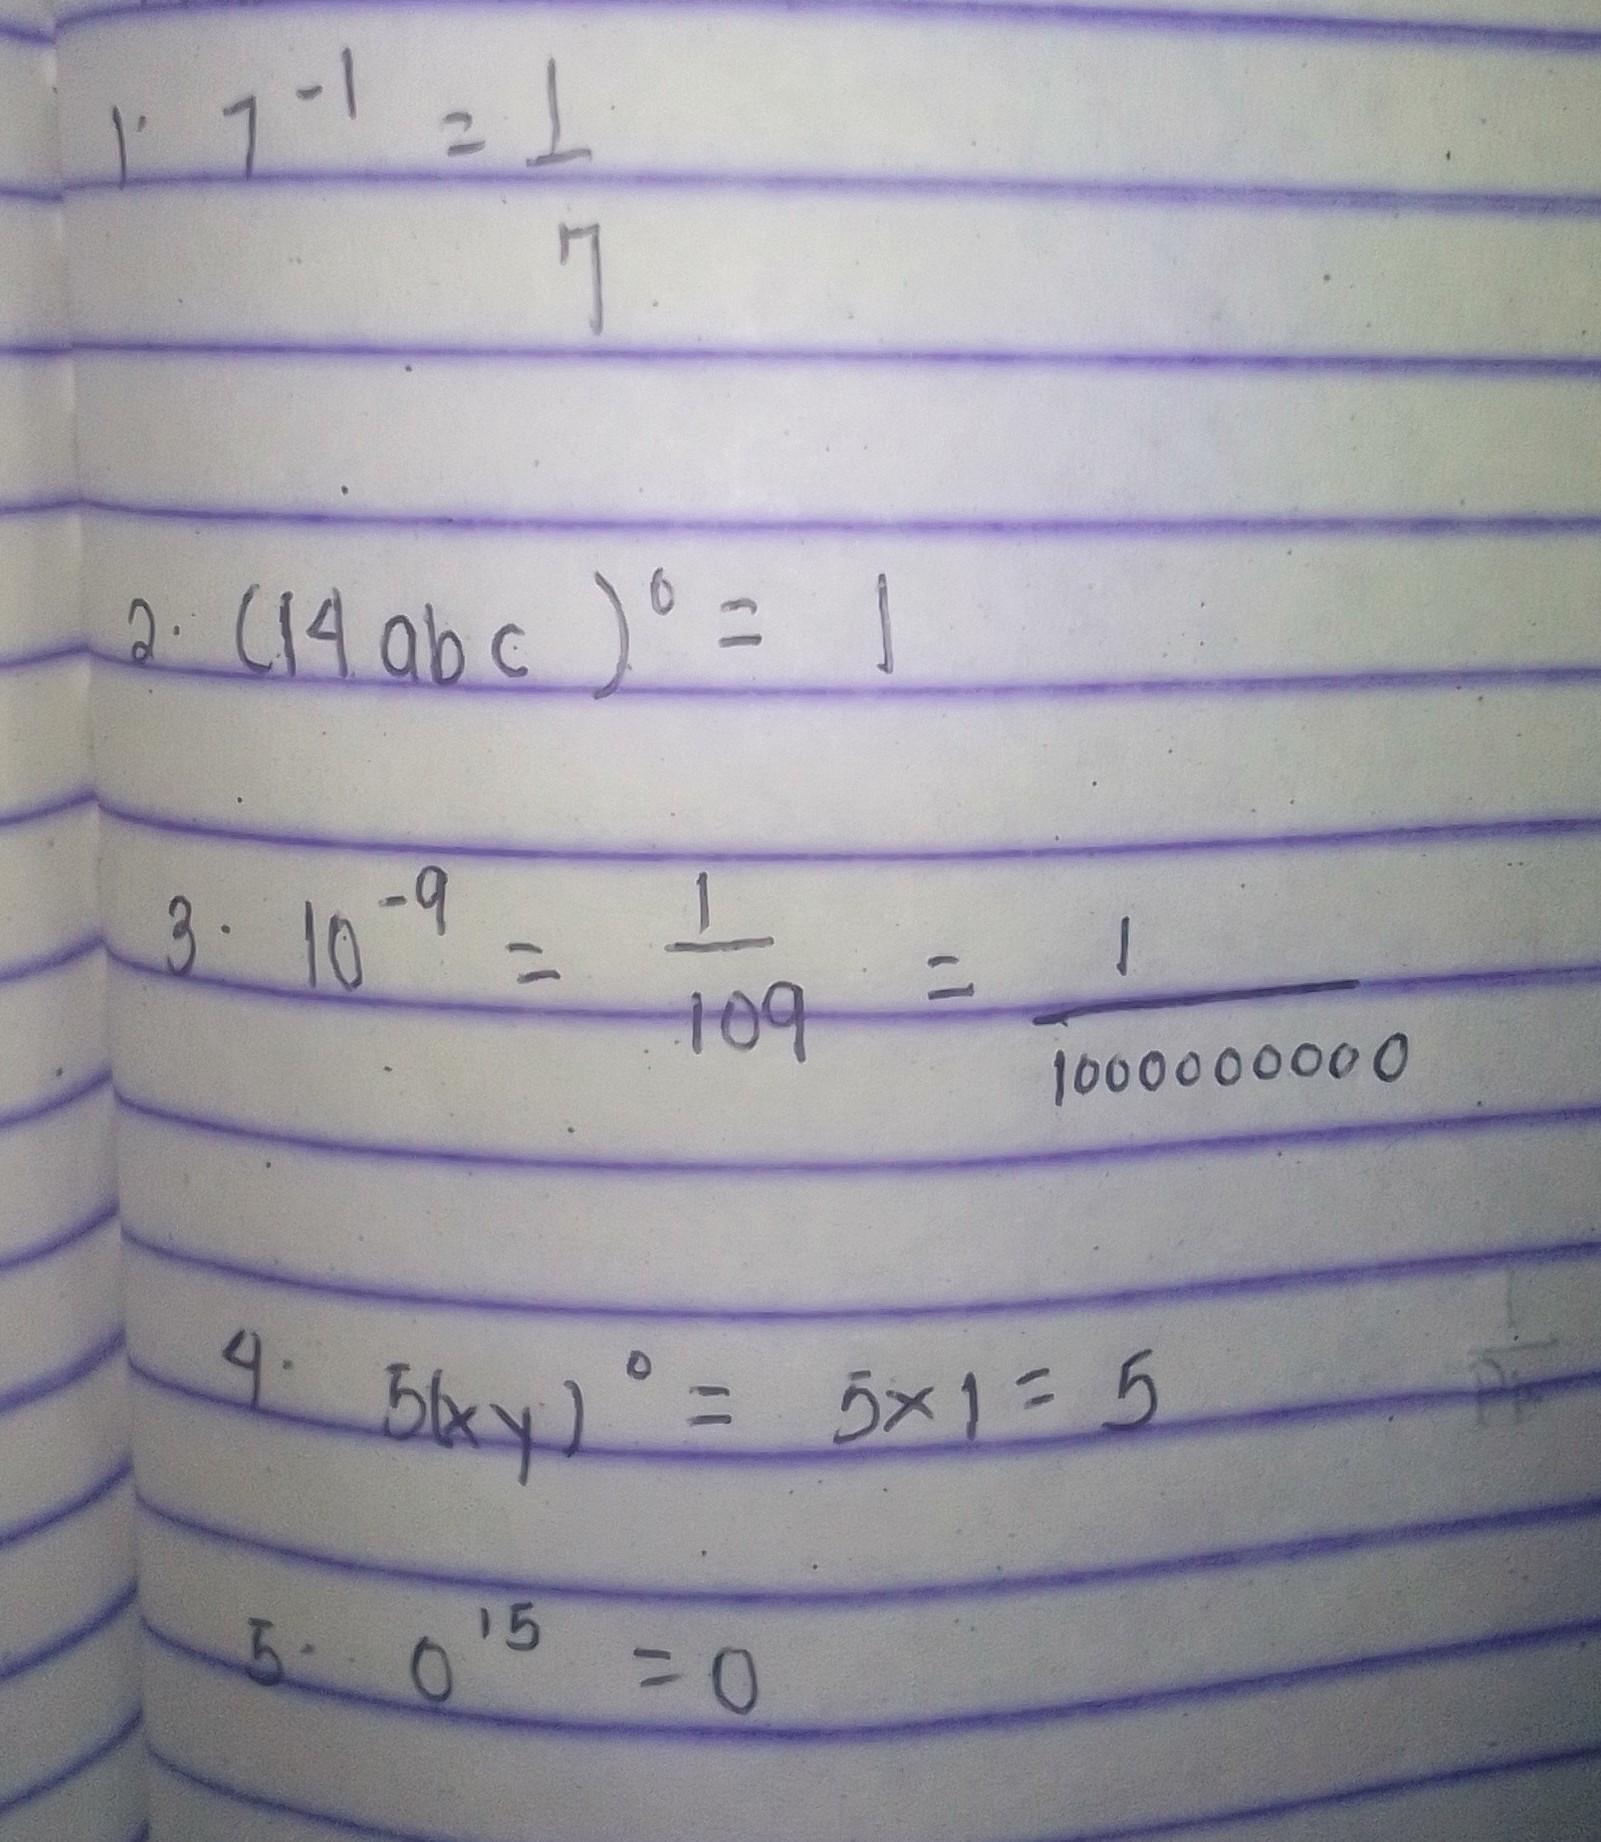 1. 7⁻¹ = 1/7
2. (14abc)⁰ = 1
3. 10⁻⁹ = 1/109 = 1/1000000000
4. 5(xy)⁰ = 5×1 = 5
5. 0¹⁵ = 0